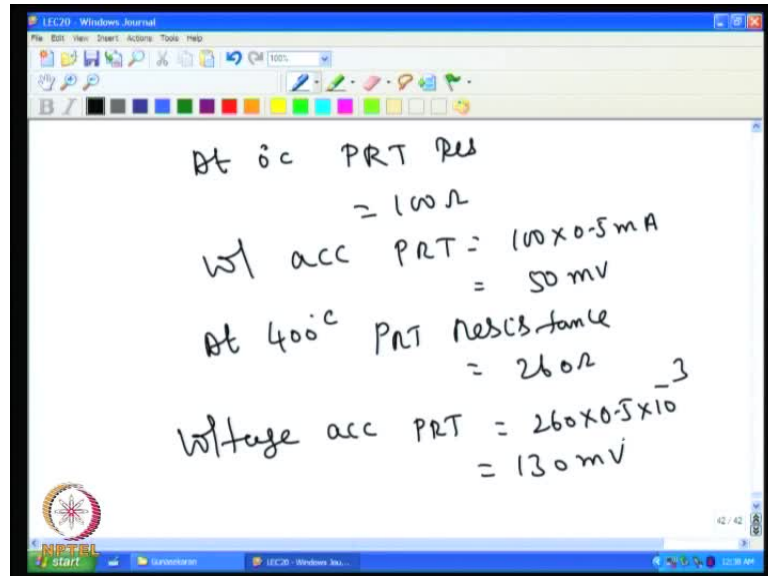 LEC20 - Windows Journal
File Edit View Insert Actions Tools Help
100%
B I
At 0°C PRT Res
= 100 Ω
Vol acc PRT = 100 × 0.5 mA
= 50 mV
At 400°C PRT Resistance
= 260 Ω
Voltage acc PRT = 260 × 0.5 × 10⁻³
= 130 mV
42 / 42
NPTEL
start Gunasekaran LEC20 - Windows Jou... 12:38 AM